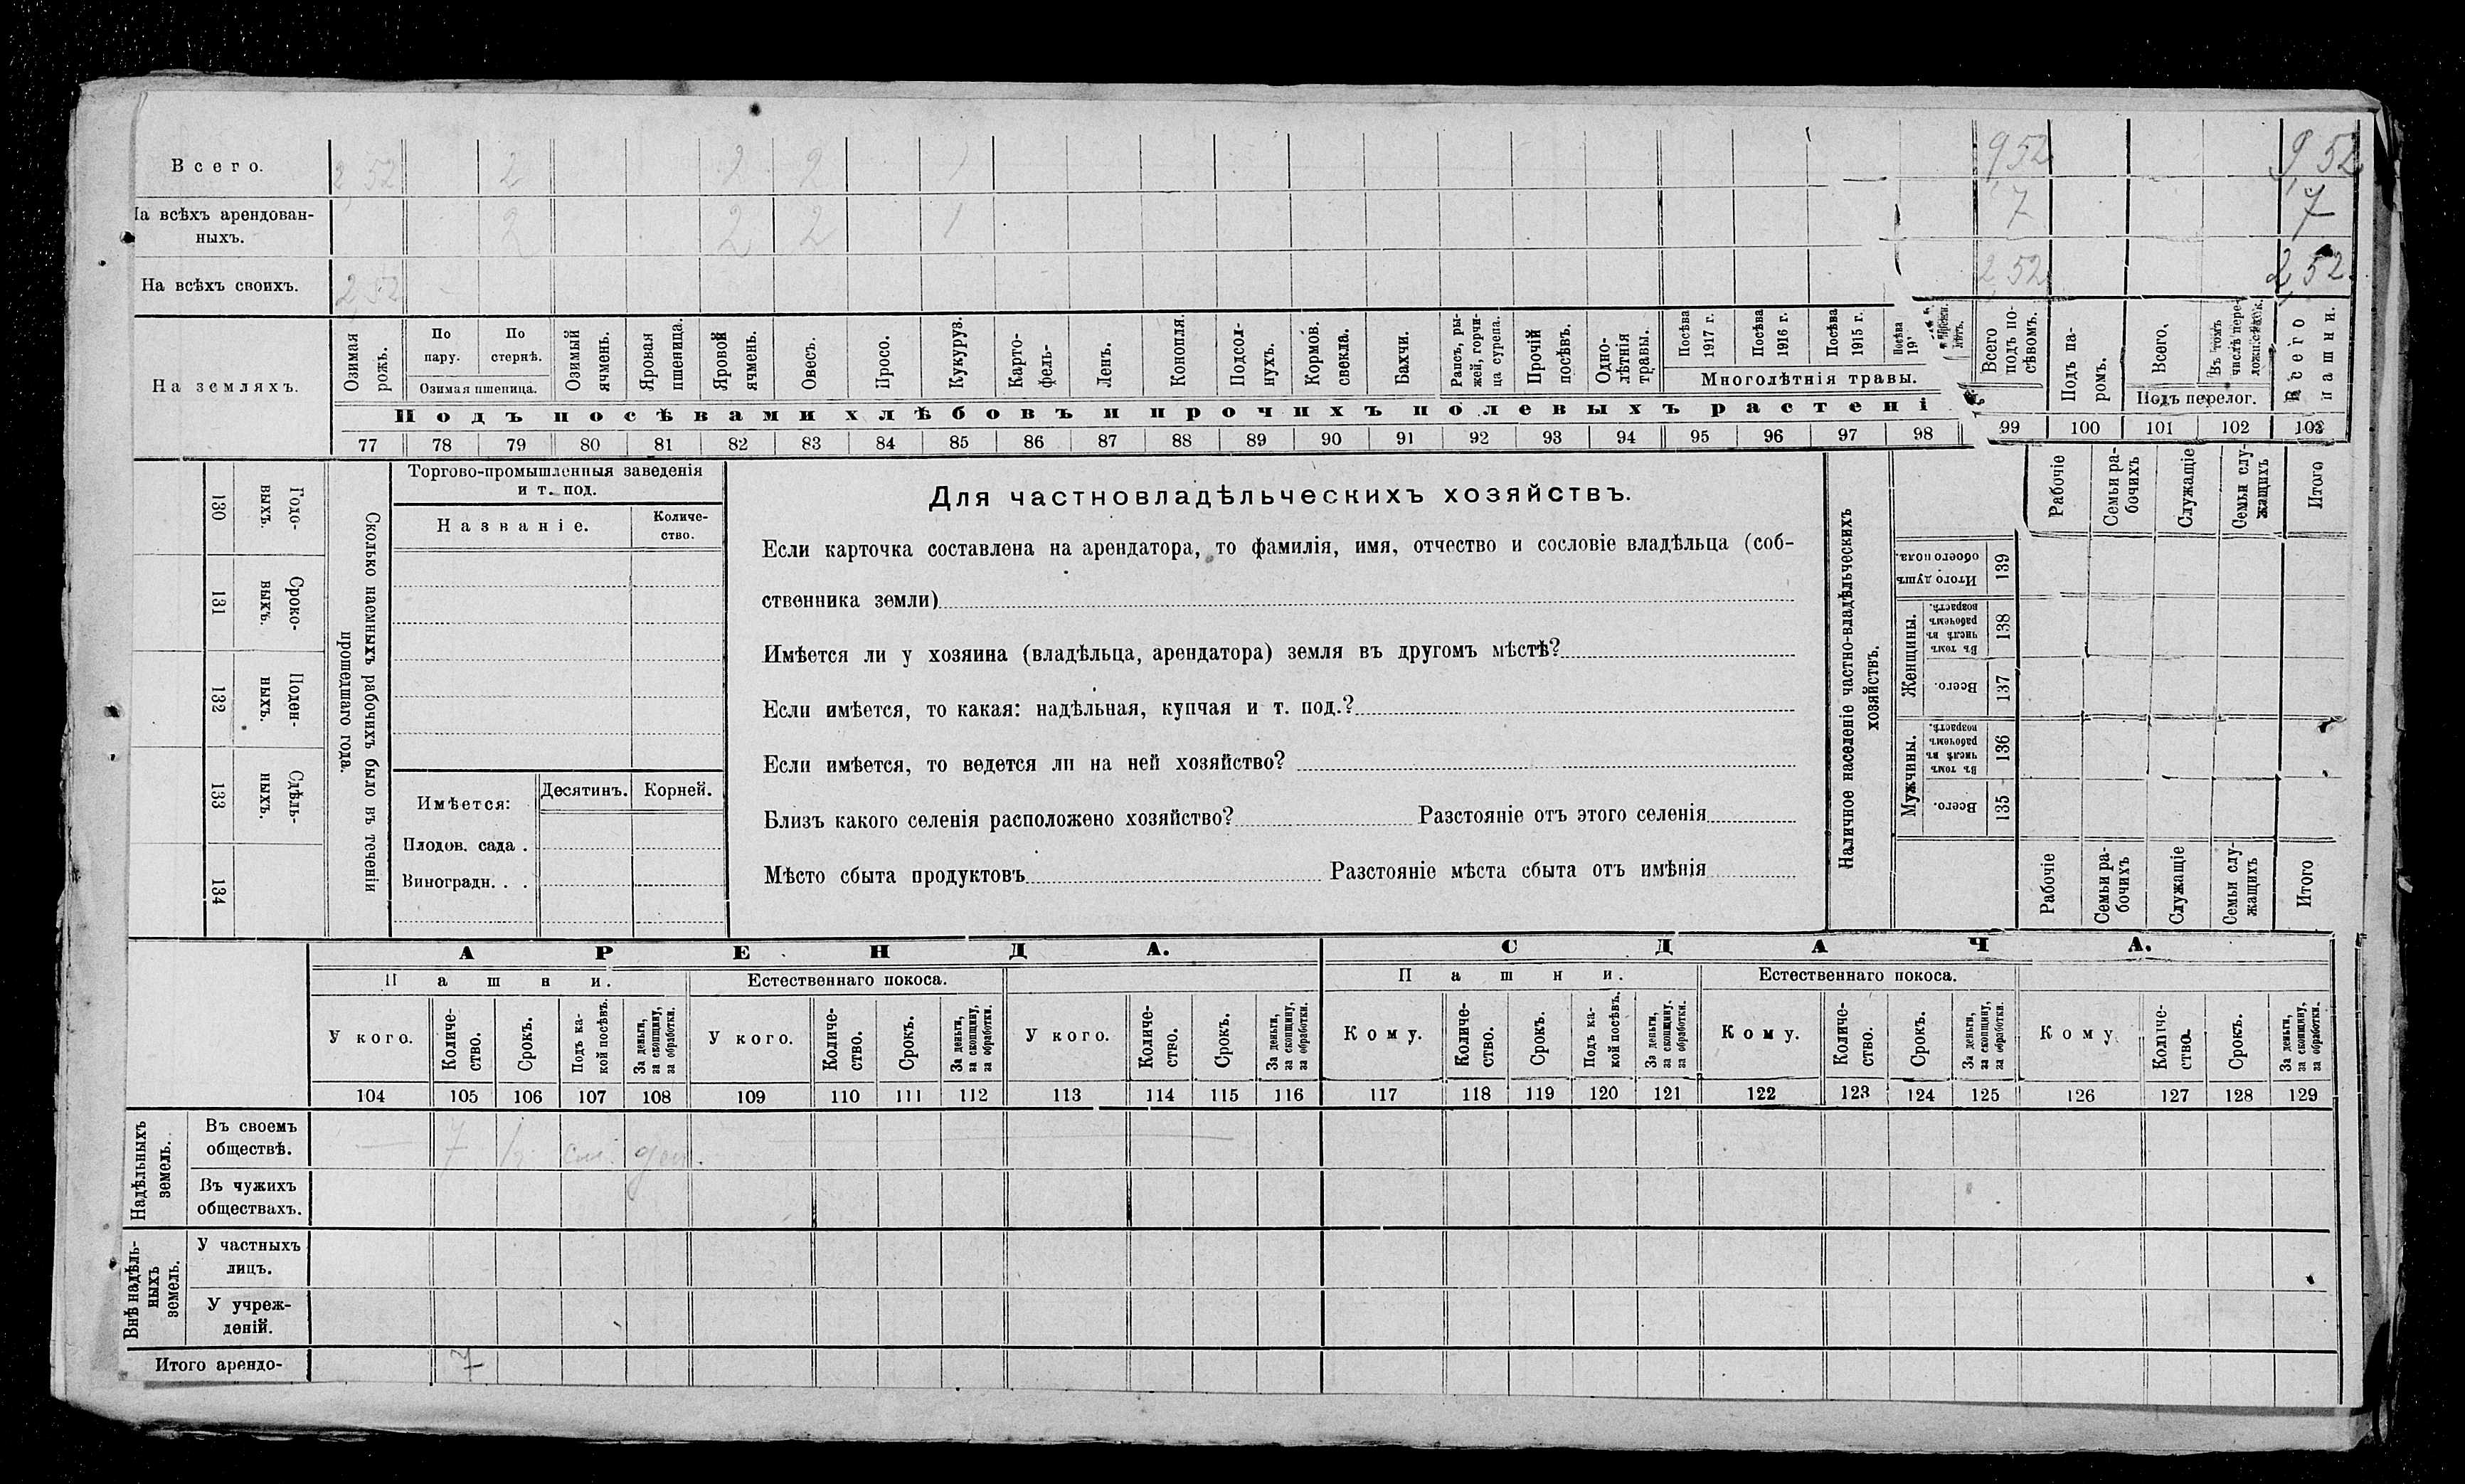 Всего. 2 52 2 2 2 1 9 52 9 52
На всѣхъ арендован-
ныхъ. 2 2 2 1 7 7
На всѣхъ своихъ. 2 52 2 52 2 52
На земляхъ.
Озимая рожь.
По пару.
По стернѣ.
Озимая пшеница.
Озимый ячмень.
Яровая пшеница.
Яровой ячмень.
Овесъ.
Просо.
Кукуруз.
Карто-
фель-
Ленъ.
Конопля.
Подсол-
нухъ.
Кормов. свекла.
Бахчи.
Рапсъ, ры-
жей, горчи-
ца сурепа.
Прочій посѣвъ.
Одно-
лѣтнія травы.
Посѣва 1917 г.
Посѣва 1916 г.
Посѣва 1915 г.
Посѣва
Многолѣтнія травы.
Всего подъ по-
сѣвомъ.
Подъ па-
ромъ.
Всего,
Въ томъ числѣ пере-
Подъ перелог.
Всего пашни.
Подъ посѣвами хлѣбовъ и прочихъ полевыхъ растені
77 78 79 80 81 82 83 84 85 86 87 88 89 90 91 92 93 94 95 96 97 98 99 100 101 102 103
130 Годо-
выхъ.
131 Сроко-
выхъ.
132 Поден-
ныхъ.
133 Сдѣль-
ныхъ.
134
Сколько наемныхъ рабочихъ было въ теченіи
прошедшаго года.
Торгово-промышленныя заведенія
и т. под.
Названіе. Количе-
ство.
Имѣется: Десятинъ. Корней.
Плодов. сада .
Виноградн. . .
Для частновладѣльческихъ хозяйствъ.
Если карточка составлена на арендатора, то фамилія, имя, отчество и сословіе владѣльца (соб-
ственника земли)
Имѣется ли у хозяина (владѣльца, арендатора) земля въ другомъ мѣстѣ?
Если имѣется, то какая: надѣльная, купчая и т. под.?
Если имѣется, то ведется ли на ней хозяйство?
Близъ какого селенія расположено хозяйство? Разстояніе отъ этого селенія
Мѣсто сбыта продуктовъ Разстояніе мѣста сбыта отъ имѣнія
Наличное населеніе частно-владѣльческихъ
хозяйствъ.
Рабочіе
Семьи ра-
бочихъ
Служащіе
Семьи слу-
жащихъ
Итого
Итого душъ
обоего пола. 139
Женщины.
Въ томъ числѣ въ рабочемъ возрастѣ. 138
Всего. 137
Мужчины.
Въ томъ числѣ въ рабочемъ возрастѣ. 136
Всего. 135
Рабочіе
Семьи ра-
бочихъ
Служащіе
Семьи слу-
жащихъ
Итого
АРЕНДА. СДАЧА.
Пашни. Естественнаго покоса. Пашни. Естественнаго покоса.
У кого.
Количе-
ство.
Срокъ.
Подъ ка-
кой посѣвъ.
За деньги,
за скопщину,
за обработки.
У кого.
Количе-
ство.
Срокъ.
За деньги,
за скопщину,
за обработки.
У кого.
Количе-
ство.
Срокъ.
За деньги,
за скопщину,
за обработки.
Кому.
Количе-
ство.
Срокъ.
Подъ ка-
кой посѣвъ.
За деньги,
за скопщину,
за обработки.
Кому.
Количе-
ство.
Срокъ.
За деньги,
за скопщину,
за обработки.
Кому
Количе-
ство.
Срокъ.
За деньги,
за скопщину,
за обработки.
104 105 106 107 108 109 110 111 112 113 114 115 116 117 118 119 120 121 122 123 124 125 126 127 128 129
Надѣльныхъ
земель.
Въ своемъ
обществѣ. — 7
Въ чужихъ
обществахъ.
Внѣ надѣль-
ныхъ
земель.
У частныхъ
лицъ.
У учреж-
деній.
Итого арендо- 7